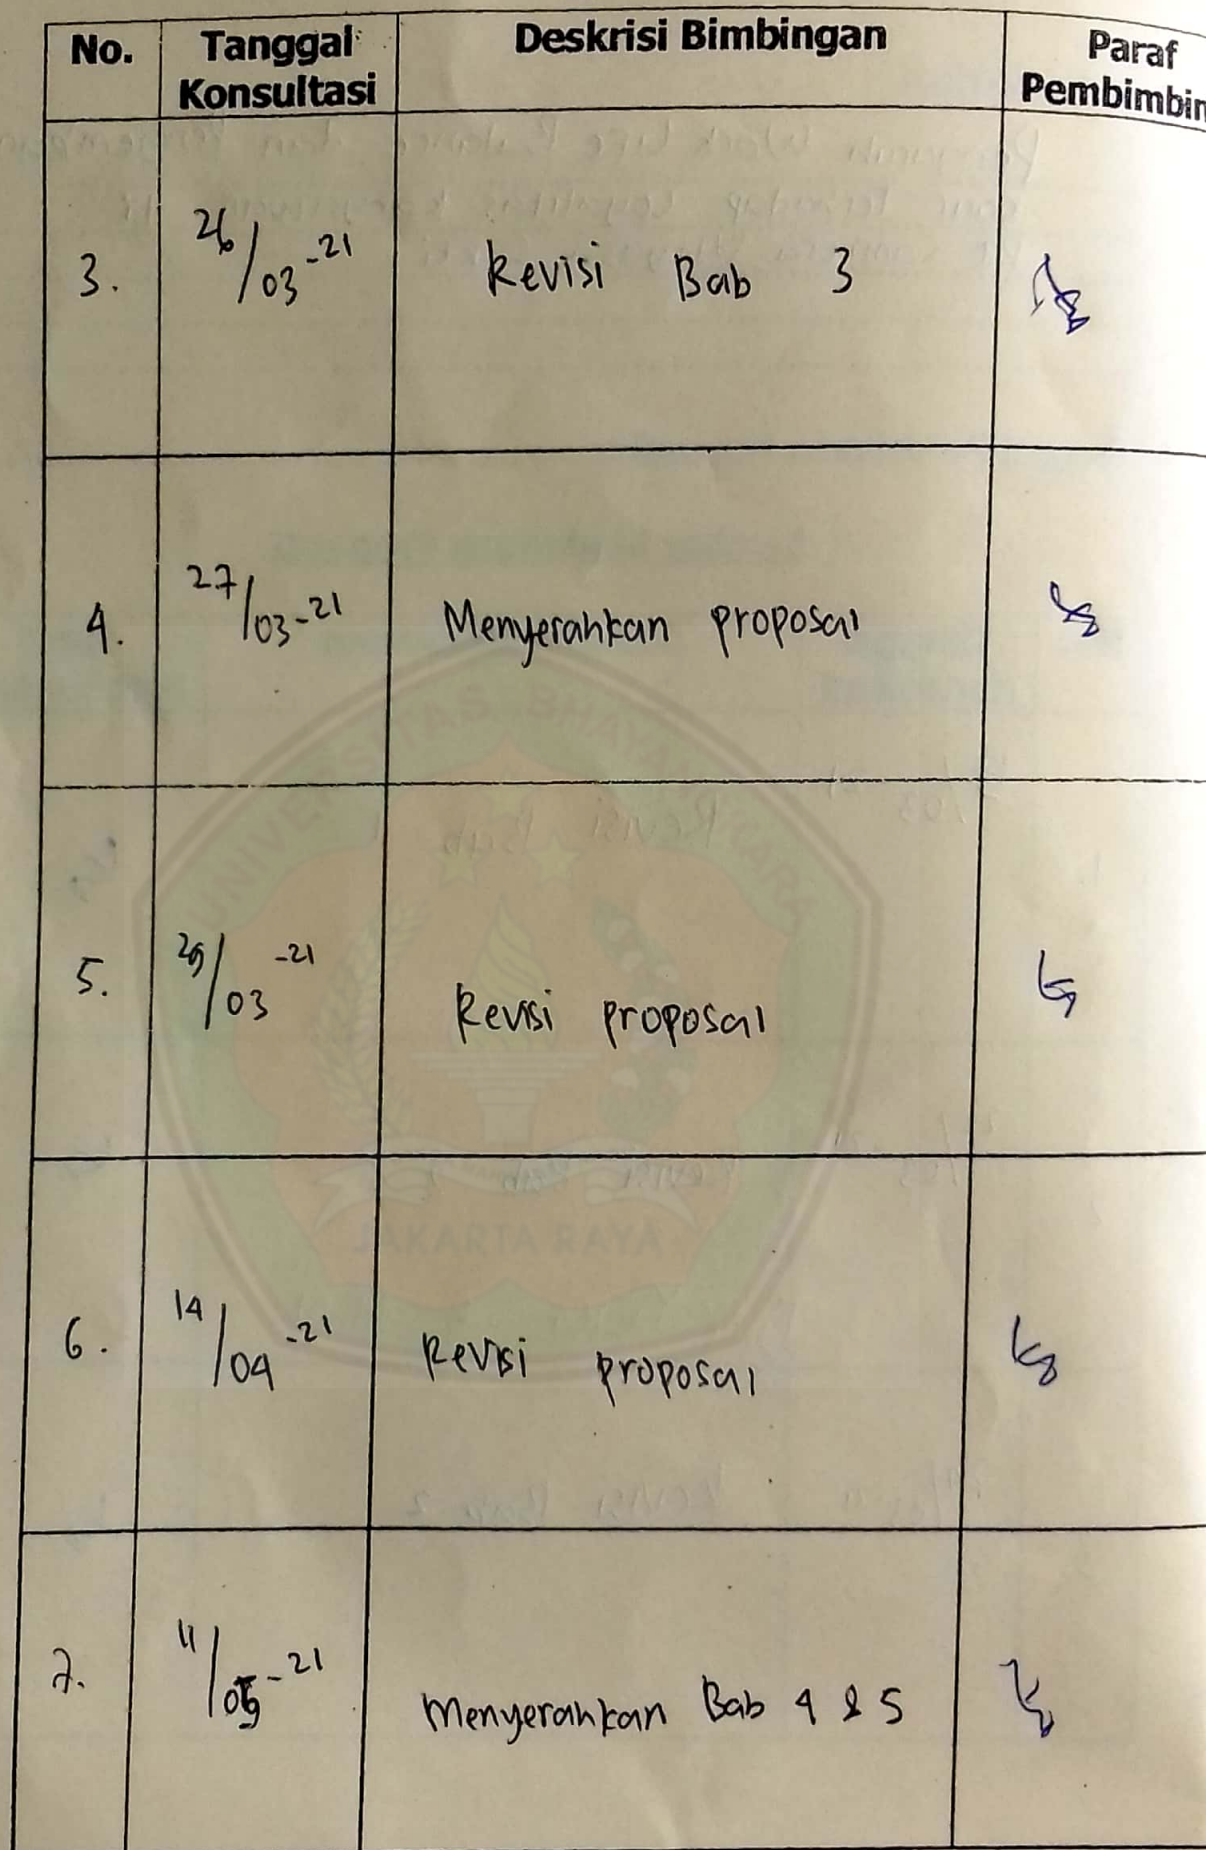 No. Tanggal Konsultasi Deskrisi Bimbingan Paraf Pembimbin
3. 26/03-21 Revisi Bab 3
4. 27/03-21 Menyerahkan proposal
5. 29/03-21 Revisi proposal
6. 14/04-21 Revisi proposal
7. 11/05-21 Menyerahkan Bab 4 & 5
UNIVERSITAS BHAYANGKARA
JAKARTA RAYA